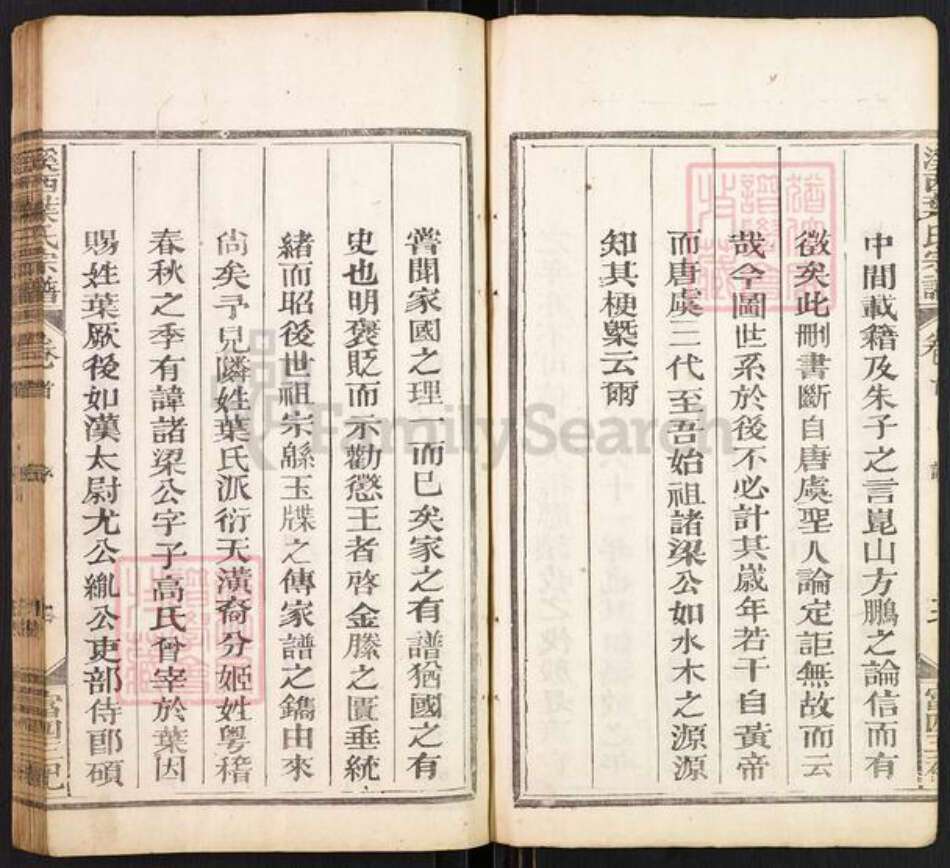 中間載籍及朱子之言崑山方鵬之論信而有
徵矣此刪書斷自唐虞聖人論定詎無故而云
哉今圖世系於後不必計其歲年若干自黃帝
而唐虞三代至吾始祖諸梁公如水木之源源
知其梗槩云爾
嘗聞家國之理一而已矣家之有譜猶國之有
史也明褒貶而示勸懲王者啓金縢之匱垂統
緒而昭後世祖宗緜玉牒之傳家譜之鐫由來
尚矣予見隣姓葉氏派衍天潢裔分姬姓粵稽
春秋之季有諱諸梁公字子高氏曾宰於葉因
賜姓葉厥後如漢太尉尤公繼公吏部侍郎碩
溪西葉氏宗譜
卷首
FamilySearch